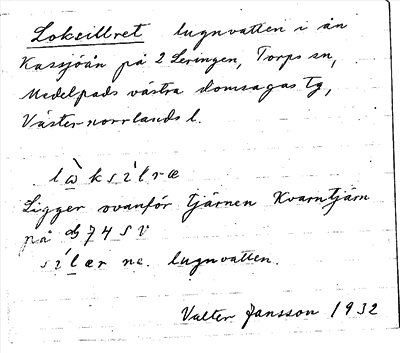 Loksillret lugnvatten i ån
Kassjöån på 2 Leringen, Torps sn,
Medelpads västra domsagas tg,
Västernorrlands l.
lὼksílræ
Ligger ovanför tjärnen Kvarntjärn
på 74 SV
sílær ne. lugnvatten.
Valter Jansson 1932